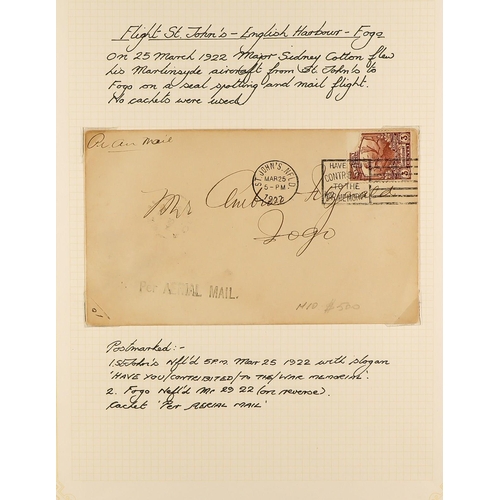 Flight St. John's - English Harbour - Fogo
On 25 March 1922 Major Sidney Cotton flew
his Martinsyde aircraft from St. John's to
Fogo on a seal spotting and mail flight.
No cachets were used
Per Air Mail
ST. JOHN'S, NF'L'D.
MAR 25
5 - PM
1922
HAVE YOU
CONTRIBUTED
TO THE
WAR MEMORIAL
3
Mr Ambrose
Fogo
Per AERIAL MAIL.
$500
Postmarked:-
1. St John's Nfl'd 5PM Mar 25 1922 with slogan
'HAVE YOU/CONTRIBUTED/TO THE/WAR MEMORIAL'.
2. Fogo Nefl'd Mr 29 22 (on reverse).
Cachet 'Per AERIAL MAIL'